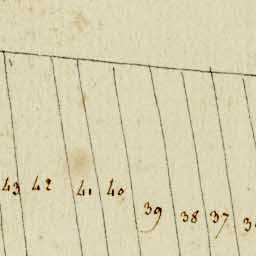 43 42 41 40 39 38 37